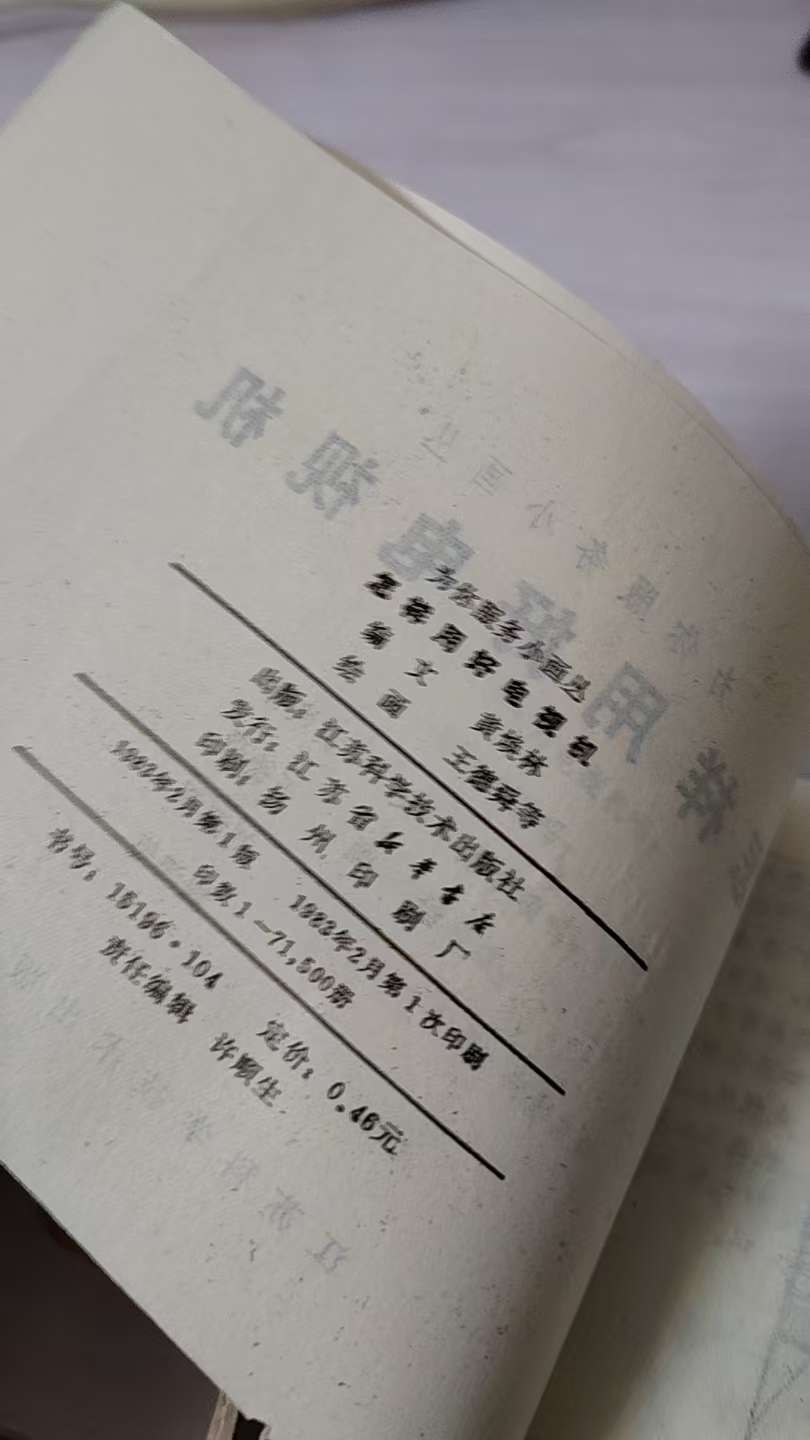 为你服务小画丛
怎样用好电视机
编文 黄焕林
绘画 王德舜等
出版：江苏科学技术出版社
发行：江苏省新华书店
印刷：扬州印刷厂
1983年2月第1版 1983年2月第1次印刷
印数1—71,500册
书号：15196·104 定价：0.46元
责任编辑 许顺生